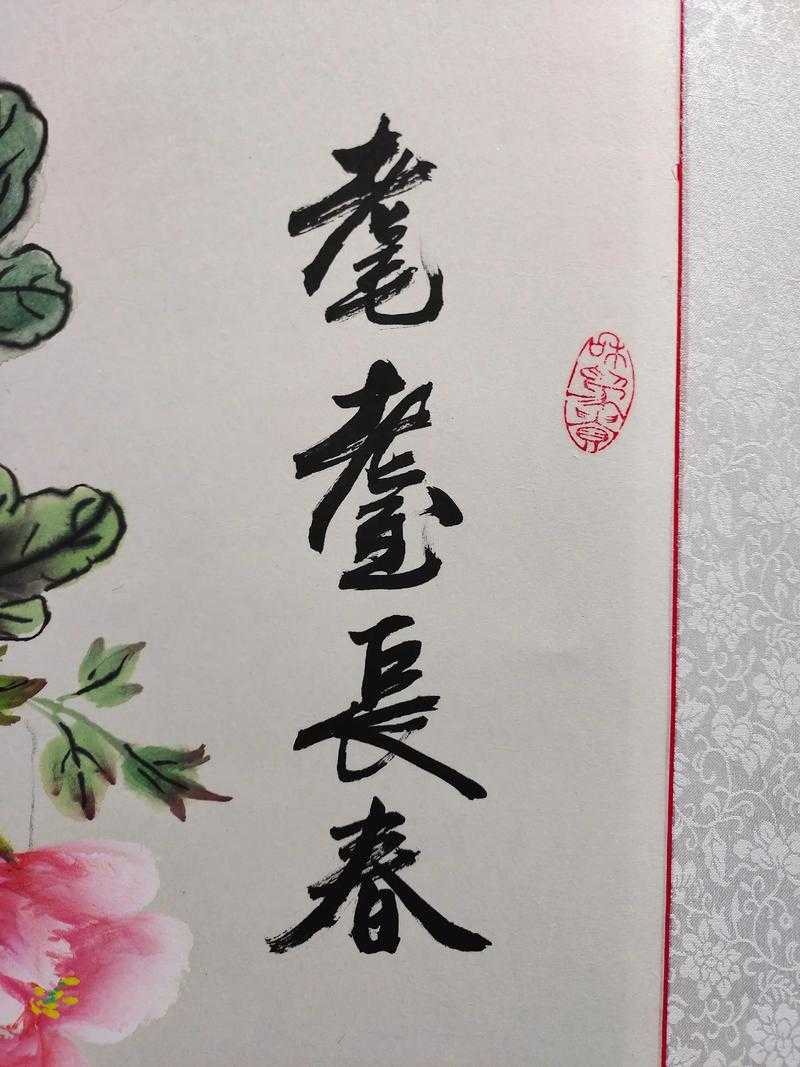 耄耋長春